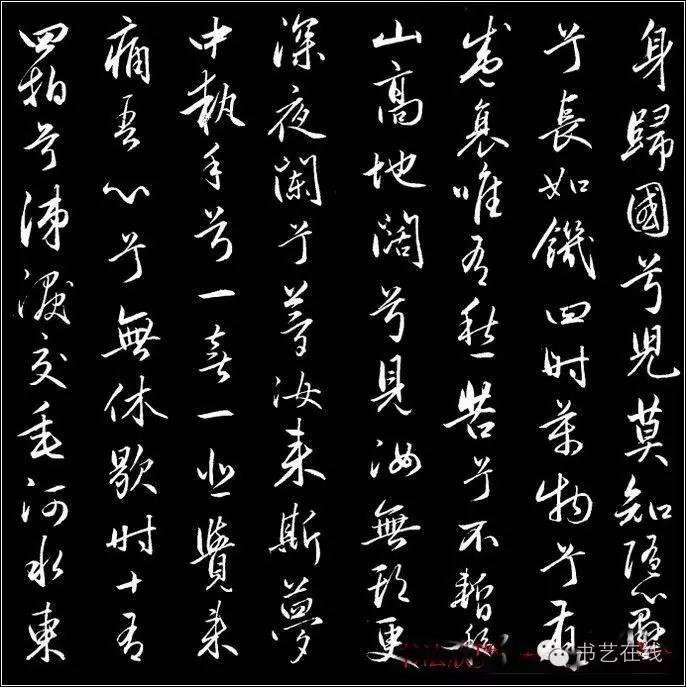 身歸國兮兒莫知隨心懸
兮長如饑四時萬物兮有
盛衰唯有愁苦兮不暫移
山高地闊兮見汝無期更
深夜闌兮夢汝來斯夢
中執手兮一喜一悲覺來
痛吾心兮無休歇時十有
四拍兮涕淚交垂河水東
书艺在线